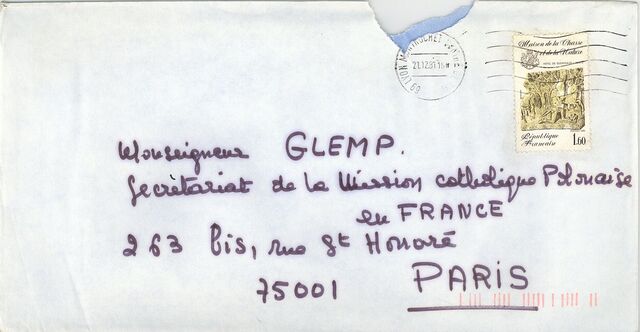 69 LYON MONTROCHET
21.12.81 18H
Maison de la Chasse
et de la Nature
République
Française
1.60
Monseigneur GLEMP.
Secrétariat de la Mission catholique Polonaise
en FRANCE
263 bis, rue St Honoré
75001 PARIS